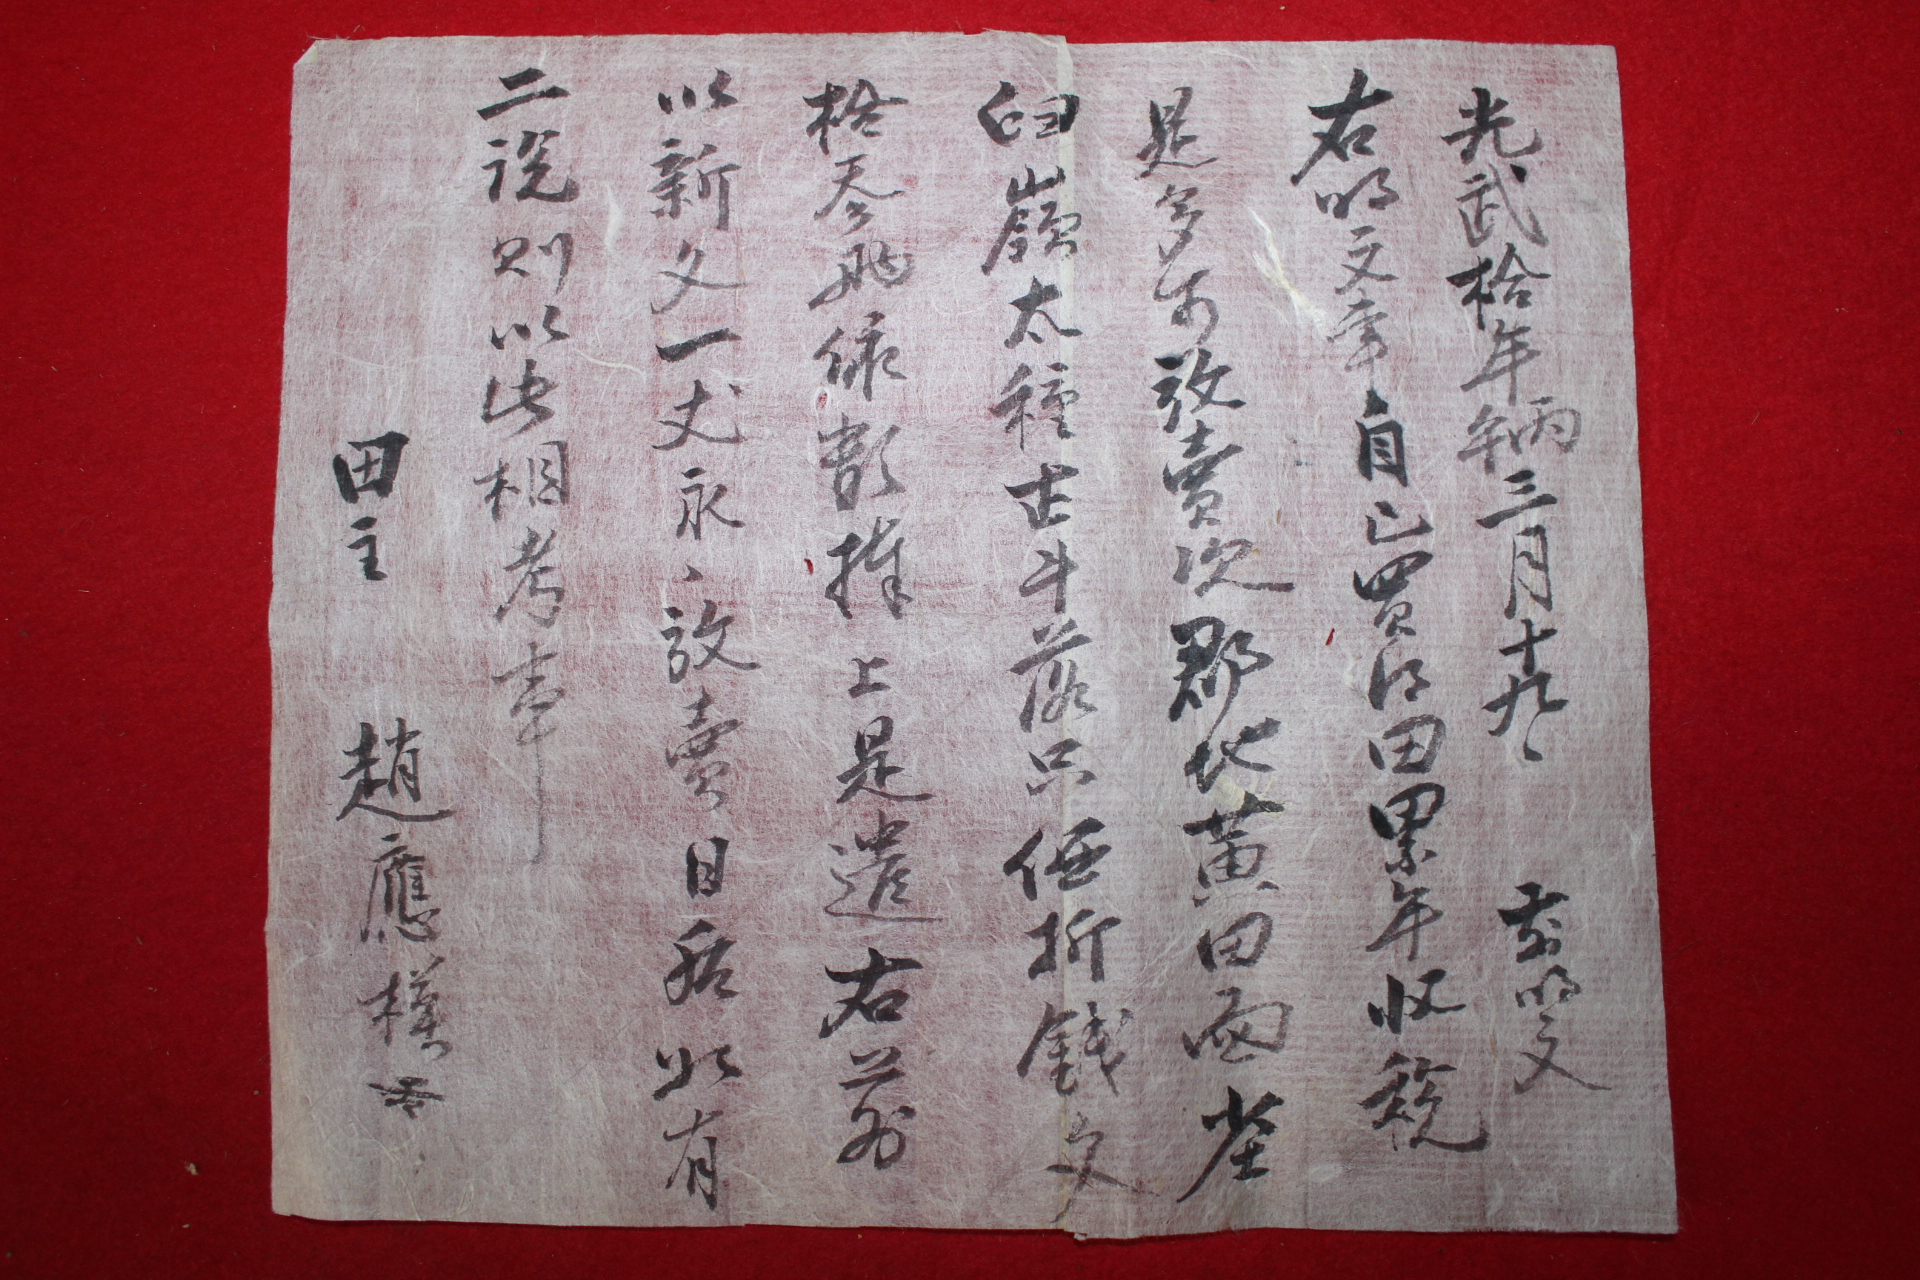 光武拾年丙午三月十九日 前明文
右明文事自己買得田累年收稅
是多可放賣次郡北黃田面坐
臼嶺太種士斗落只価折錢文
拾參兩依數捧上是遣右前
以新文一丈永永放賣日后以有
二說則以此相考事
田主 趙應模